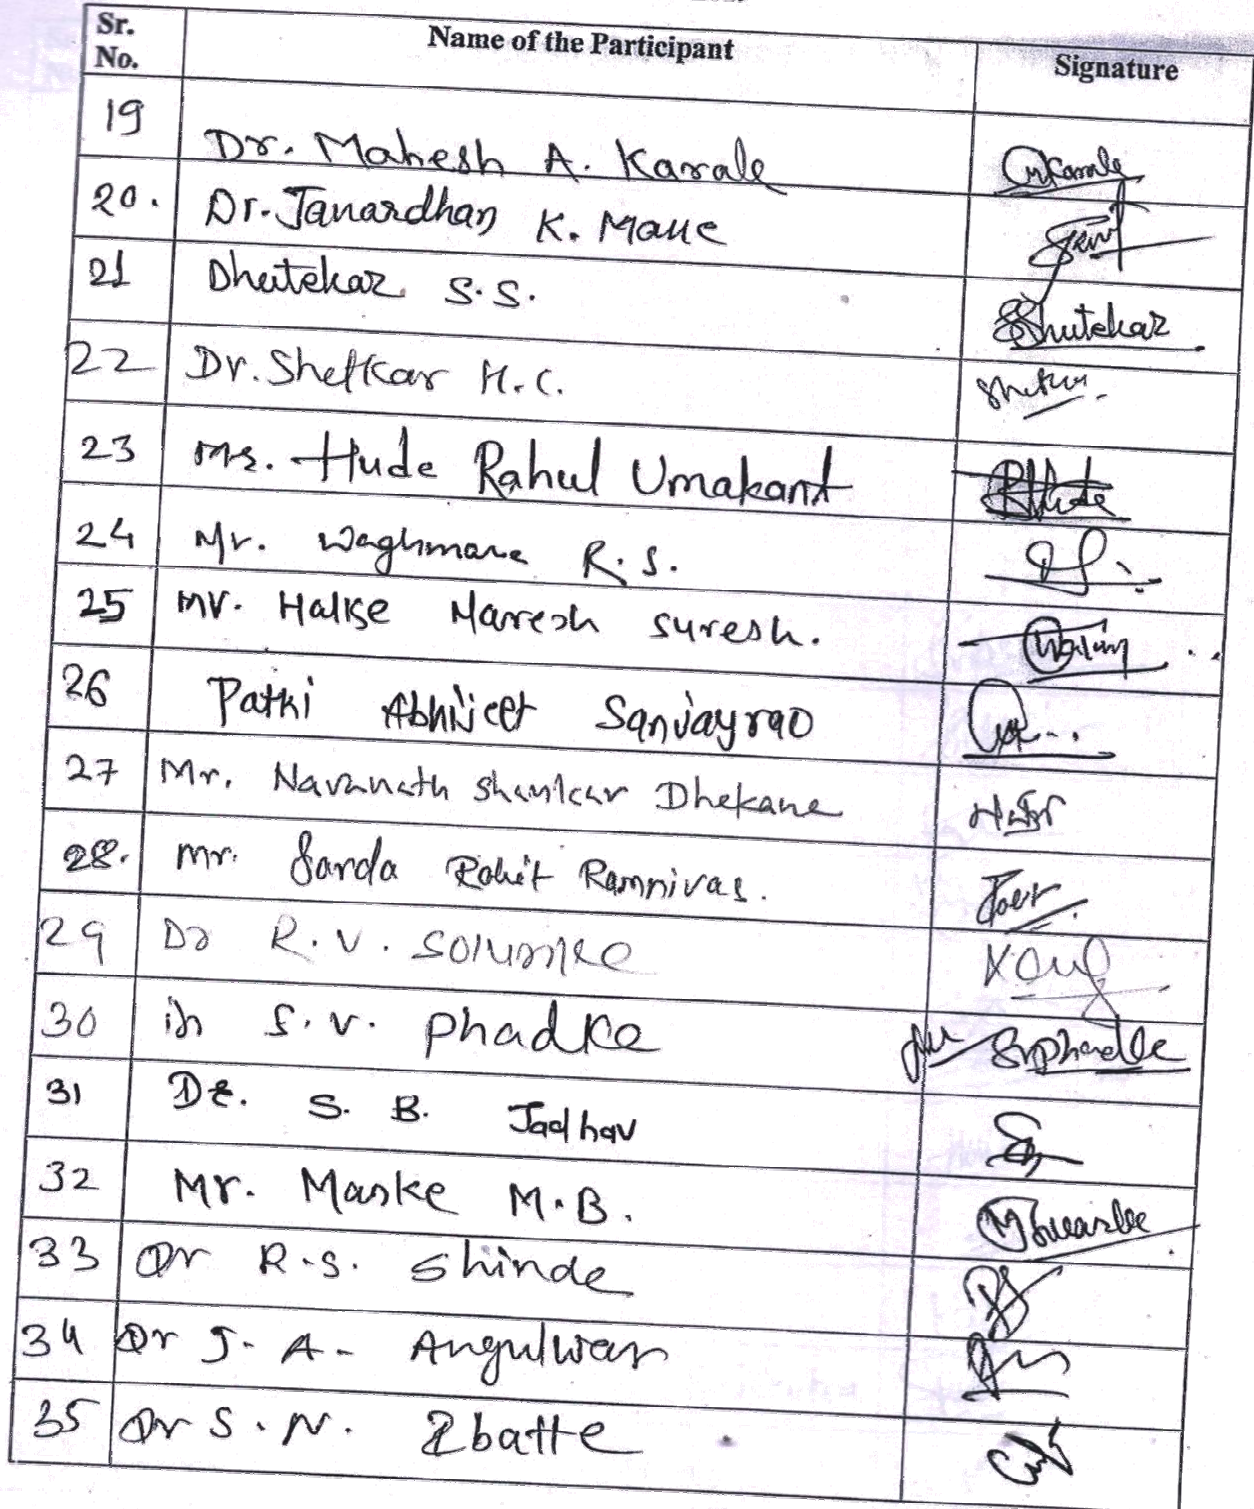 Sr. No. Name of the Participant Signature
19 Dr. Mahesh A. Karale MKarale
20. Dr. Janardhan K. Mane
21 Dhutekar S.S. SShutekar
22 Dr. Shetkar H.C.
23 Mr. Hude Rahul Umakant RHude
24 Mr. Waghmare R.S.
25 Mr. Halse Maresh Suresh.
26 Patki Abhijeet Sanjayrao
27 Mr. Navanath Shankar Dhekane
28. Mr. Sarda Rohit Ramnivas.
29 Dr R.V. Solunke
30 S.V. Phadke Svphadke
31 Dr. S. B. Jadhav
32 Mr. Maske M.B.
33 Dr R.S. Shinde
34 Dr J. A. Angulwar
35 Dr S.N. Ibatte